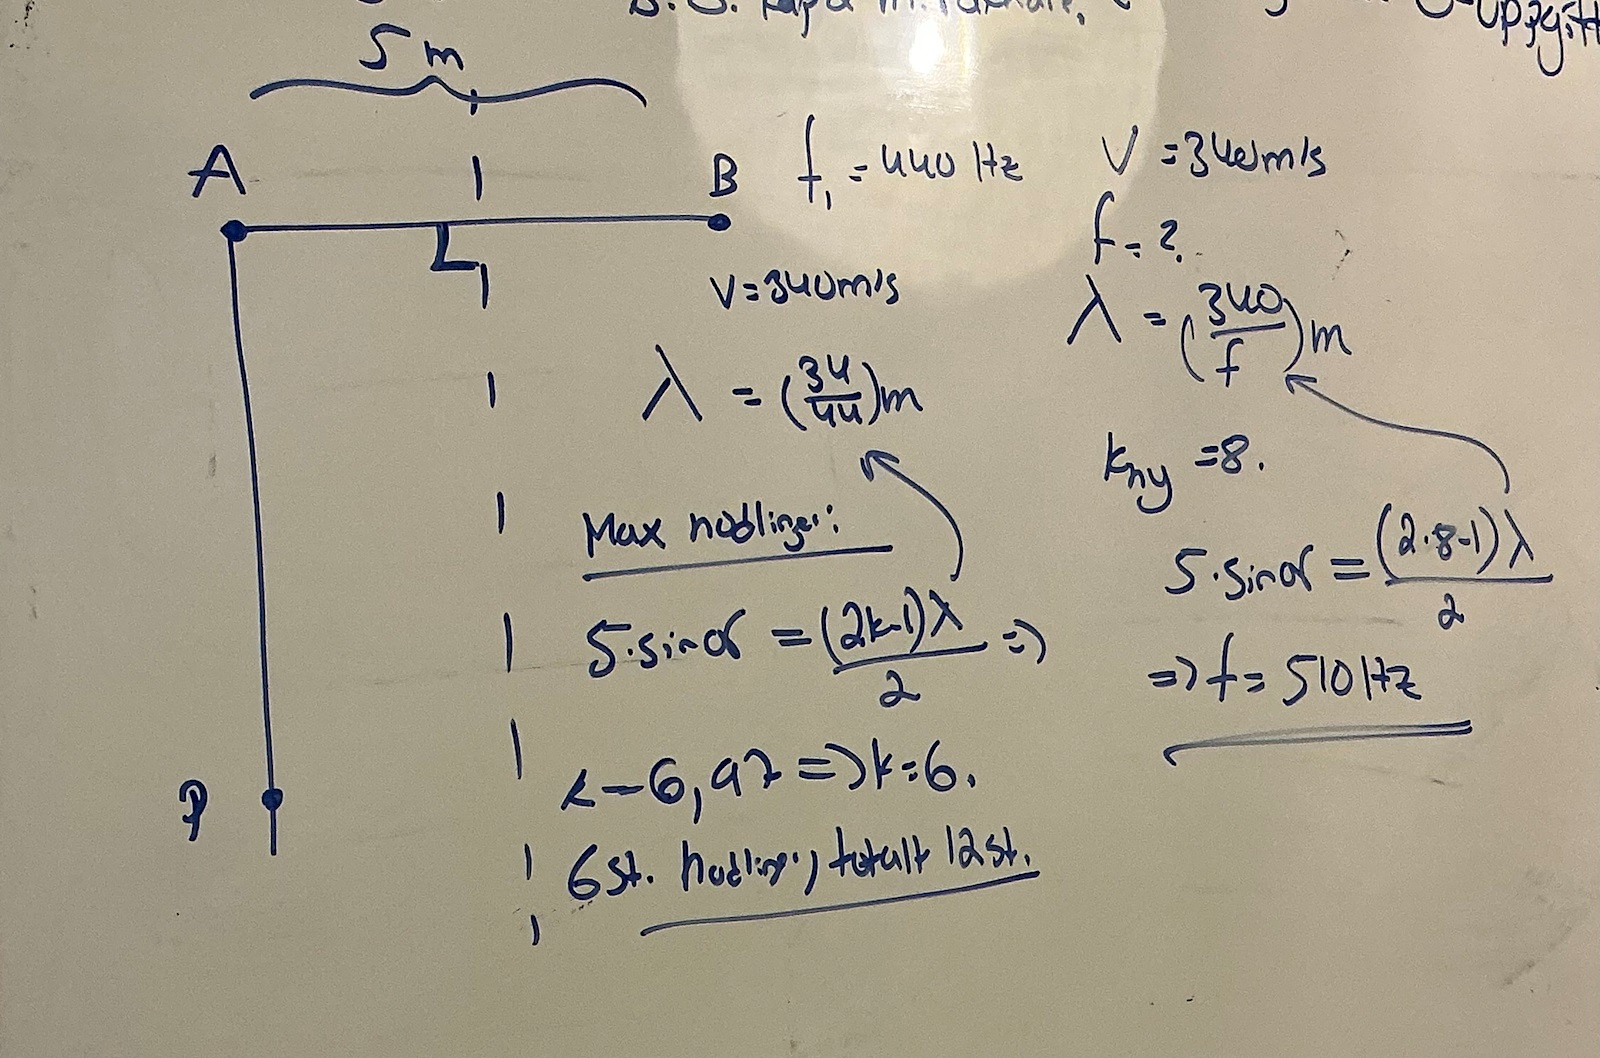 5 m
A
B
f₁ = 440 Hz
V = 340 m/s
λ = (34/44) m
Max nodlinjer:
5·sinα = (2k-1)λ/2 =>
k = 6,97 => k = 6.
6 st. nodlinjer, totalt 12 st.
P
V = 340 m/s
f = ?
λ = (340/f) m
k_ny = 8.
5·sinα = (2·8-1)λ/2
=> f = 510 Hz